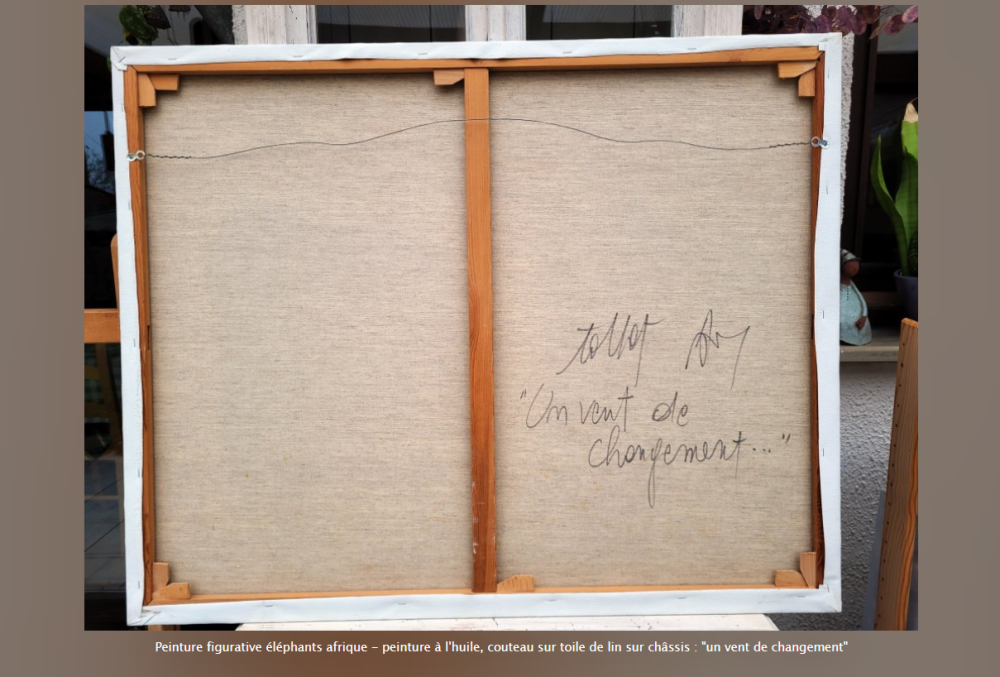 tollot
"Un vent de
changement..."
Peinture figurative éléphants afrique – peinture à l'huile, couteau sur toile de lin sur châssis : "un vent de changement"